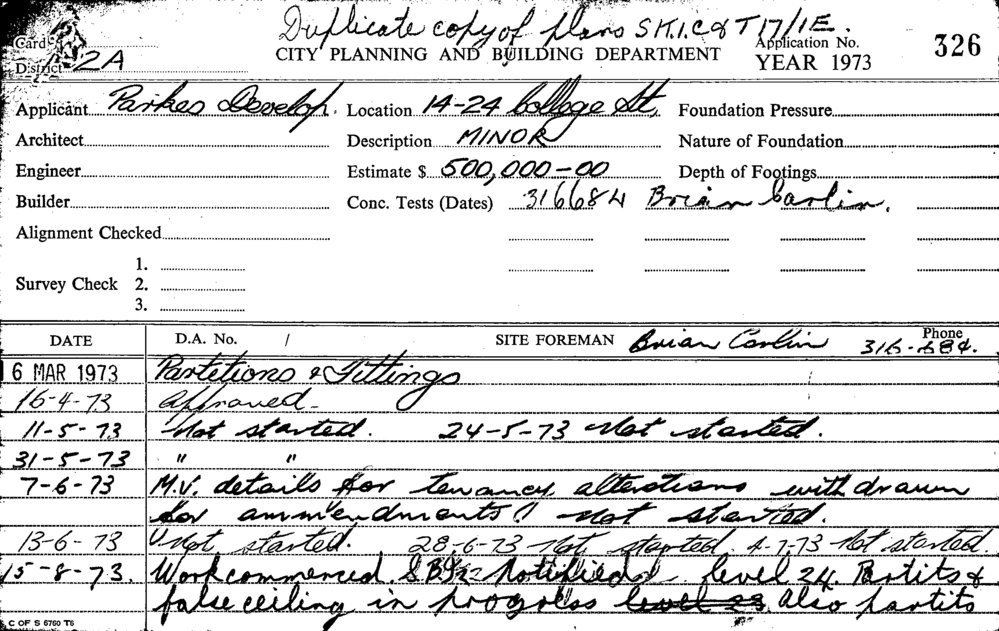 Duplicate copy of plans SK.I.C & T 17/1E.
Card
CITY PLANNING AND BUILDING DEPARTMENT
Application No.
YEAR 1973
326
District 2A
Applicant Parkes Develop. Location 14-24 College St, Foundation Pressure
Architect Description MINOR Nature of Foundation
Engineer Estimate $ 500,000-00 Depth of Footings
Builder Conc. Tests (Dates) 316684 Brian Carlin.
Alignment Checked
1.
Survey Check 2.
3.
DATE D.A. No. / SITE FOREMAN Brian Carlin Phone 316-684.
6 MAR 1973 Partetions & Fittings
16-4-73 Approved-
11-5-73 Not started. 24-5-73 Not started.
31-5-73 " "
7-6-73 M.V. details for tenancy alterations withdrawn
for ammendments Not started.
13-6-73 Not started. 28-6-73 Not started. 4-7-73 Not started.
15-8-73. Work commenced. Notified - level 24. Partits &
false ceiling in progress level 23. Also partits
C OF S 6760 T6